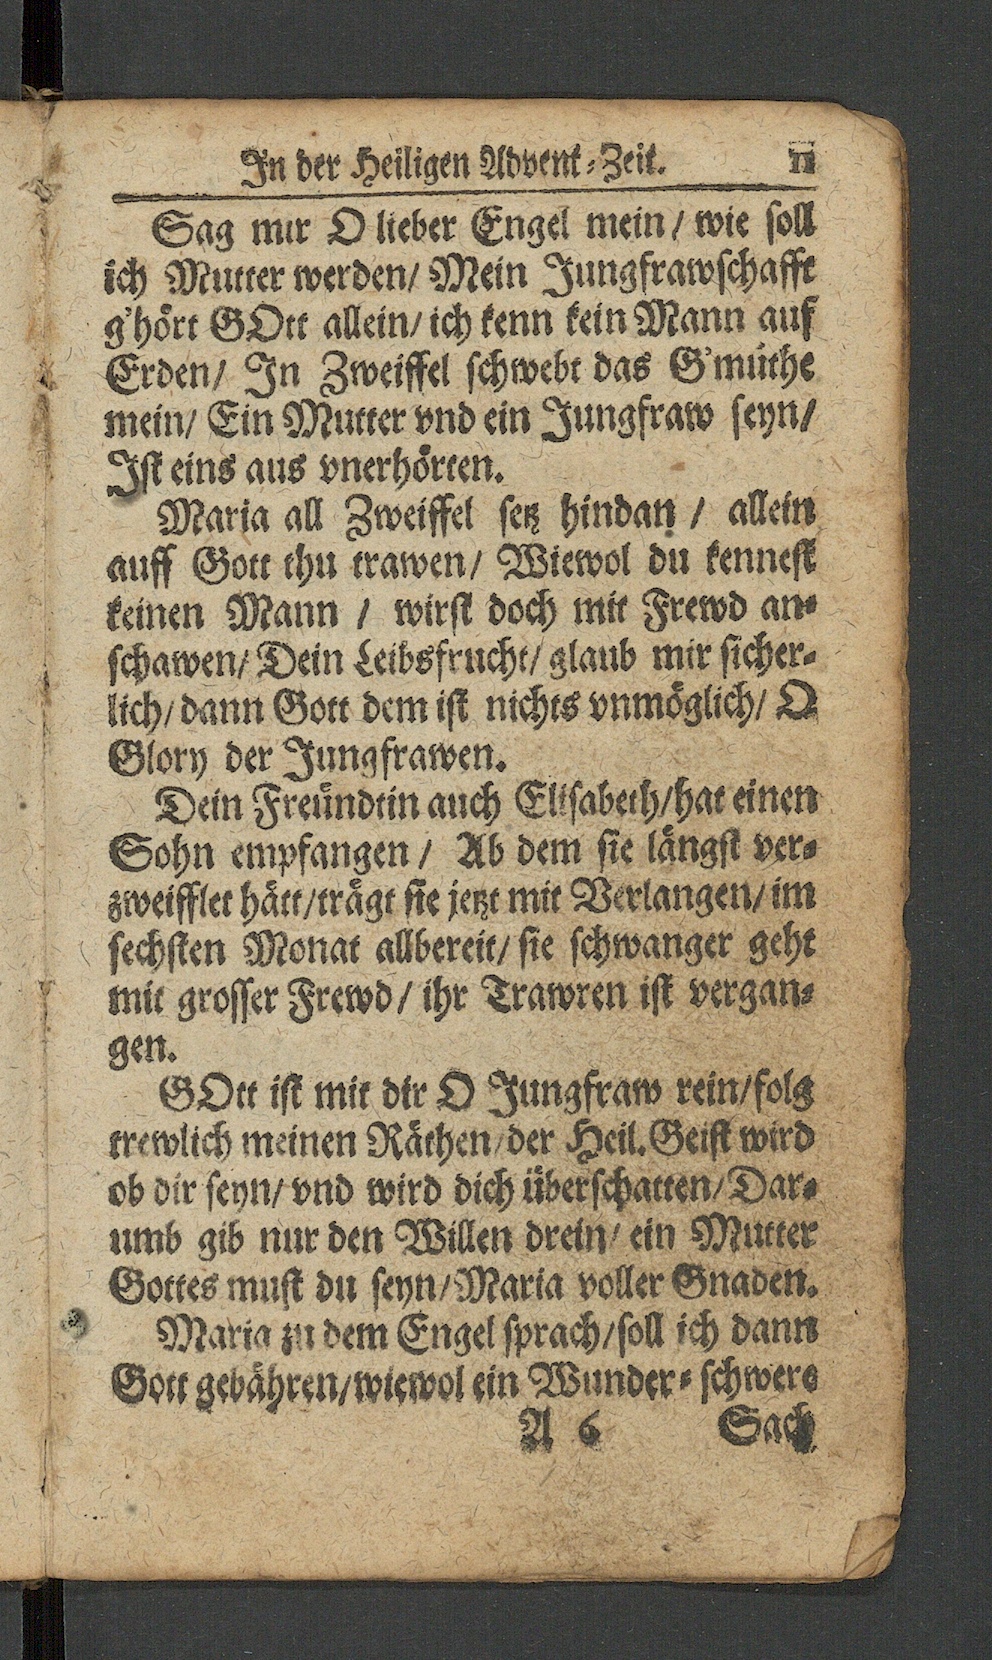 In der Heiligen Advent-Zeit. 11
Sag mir O lieber Engel mein / wie soll
ich Mutter werden / Mein Jungfrawschafft
g'hört GOtt allein / ich kenn kein Mann auf
Erden / In Zweiffel schwebt das G'müthe
mein / Ein Mutter vnd ein Jungfraw seyn /
Ist eins aus vnerhörten.
Maria all Zweiffel setz hindan / allein
auff Gott thu trawen / Wiewol du kennest
keinen Mann / wirst doch mit Frewd an-
schawen / Dein Leibsfrucht / glaub mir sicher-
lich / dann Gott dem ist nichts vnmöglich / O
Glory der Jungfrawen.
Dein Freündtin auch Elisabeth / hat einen
Sohn empfangen / Ab dem sie längst ver-
zweifflet hätt / trägt sie jetzt mit Verlangen / im
sechsten Monat allbereit / sie schwanger geht
mit grosser Frewd / ihr Trawren ist vergan-
gen.
GOtt ist mit dir O Jungfraw rein / folg
trewlich meinen Räthen / der Heil. Geist wird
ob dir seyn / vnd wird dich überschatten / Dar-
umb gib nur den Willen drein / ein Mutter
Gottes must du seyn / Maria voller Gnaden.
Maria zu dem Engel sprach / soll ich dann
Gott gebähren / wiewol ein Wunder-schwere
A 6 Sach